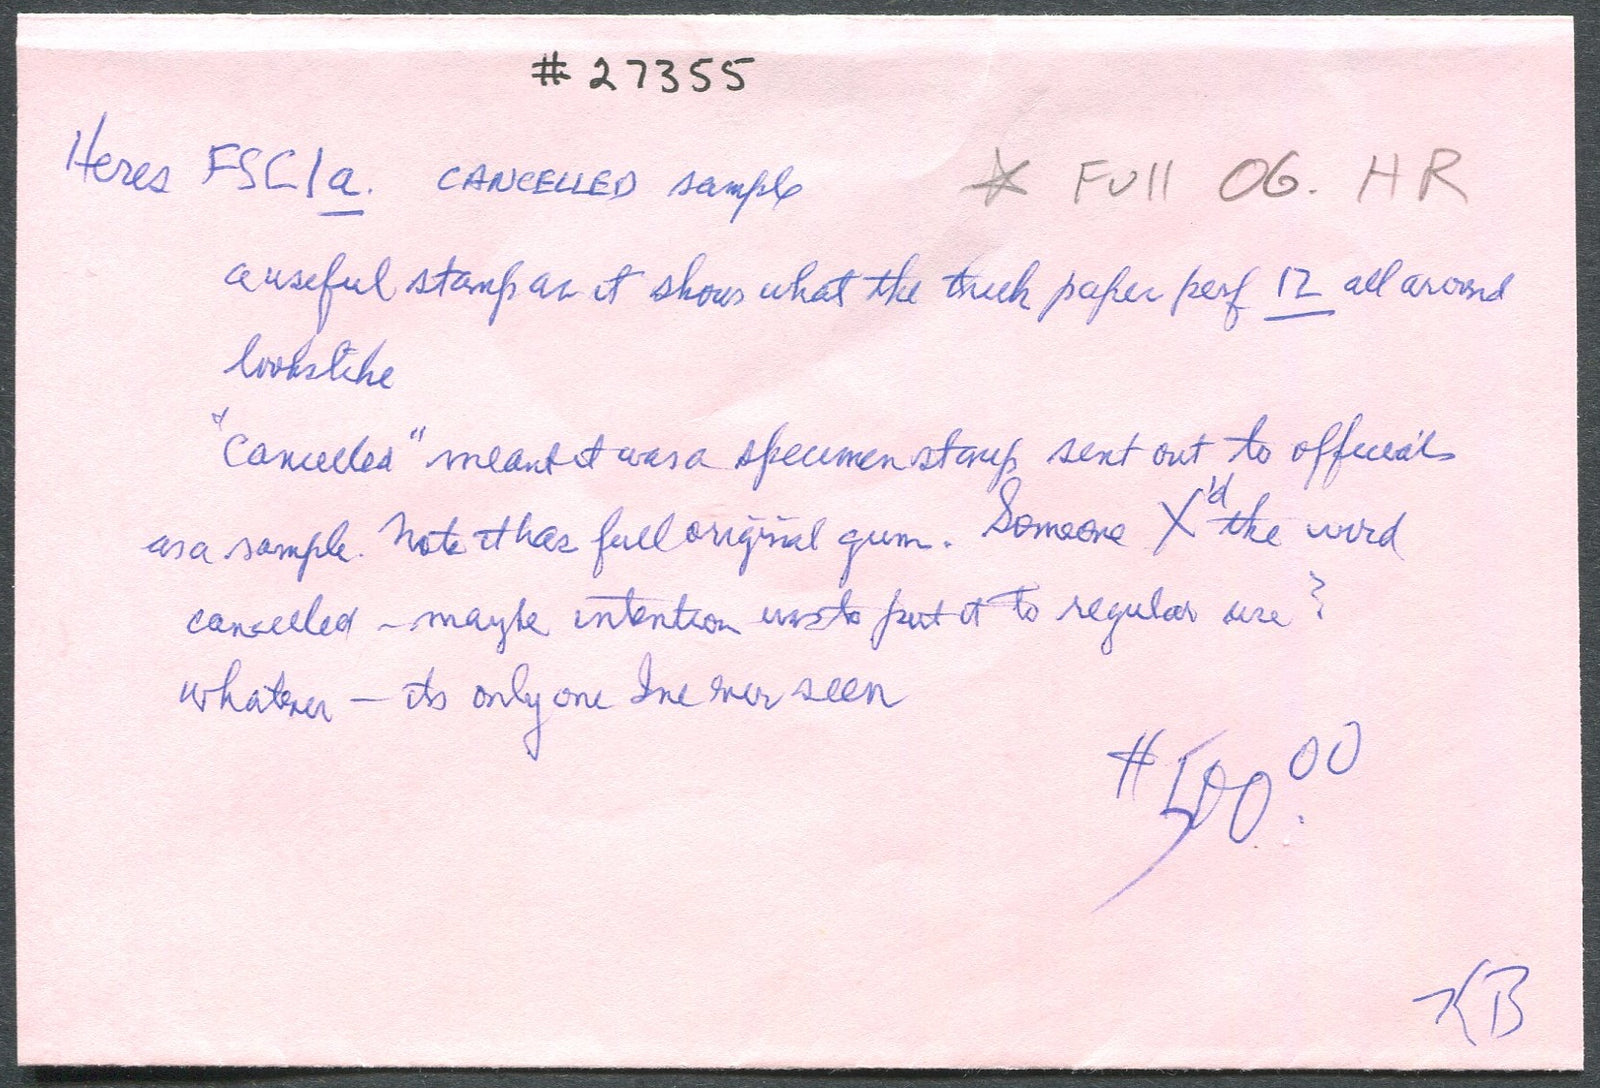 #27355
Heres FSC1a. CANCELLED sample
* Full OG. HR
a useful stamp as it shows what the thick paper perf 12 all around
looks like
"Cancelled" meant it was a specimen stamp sent out to officials
as a sample. Note it has full original gum. Someone X'd the word
cancelled – maybe intention was to put it to regular use?
whatever – its only one Ive ever seen
$500.00
KB